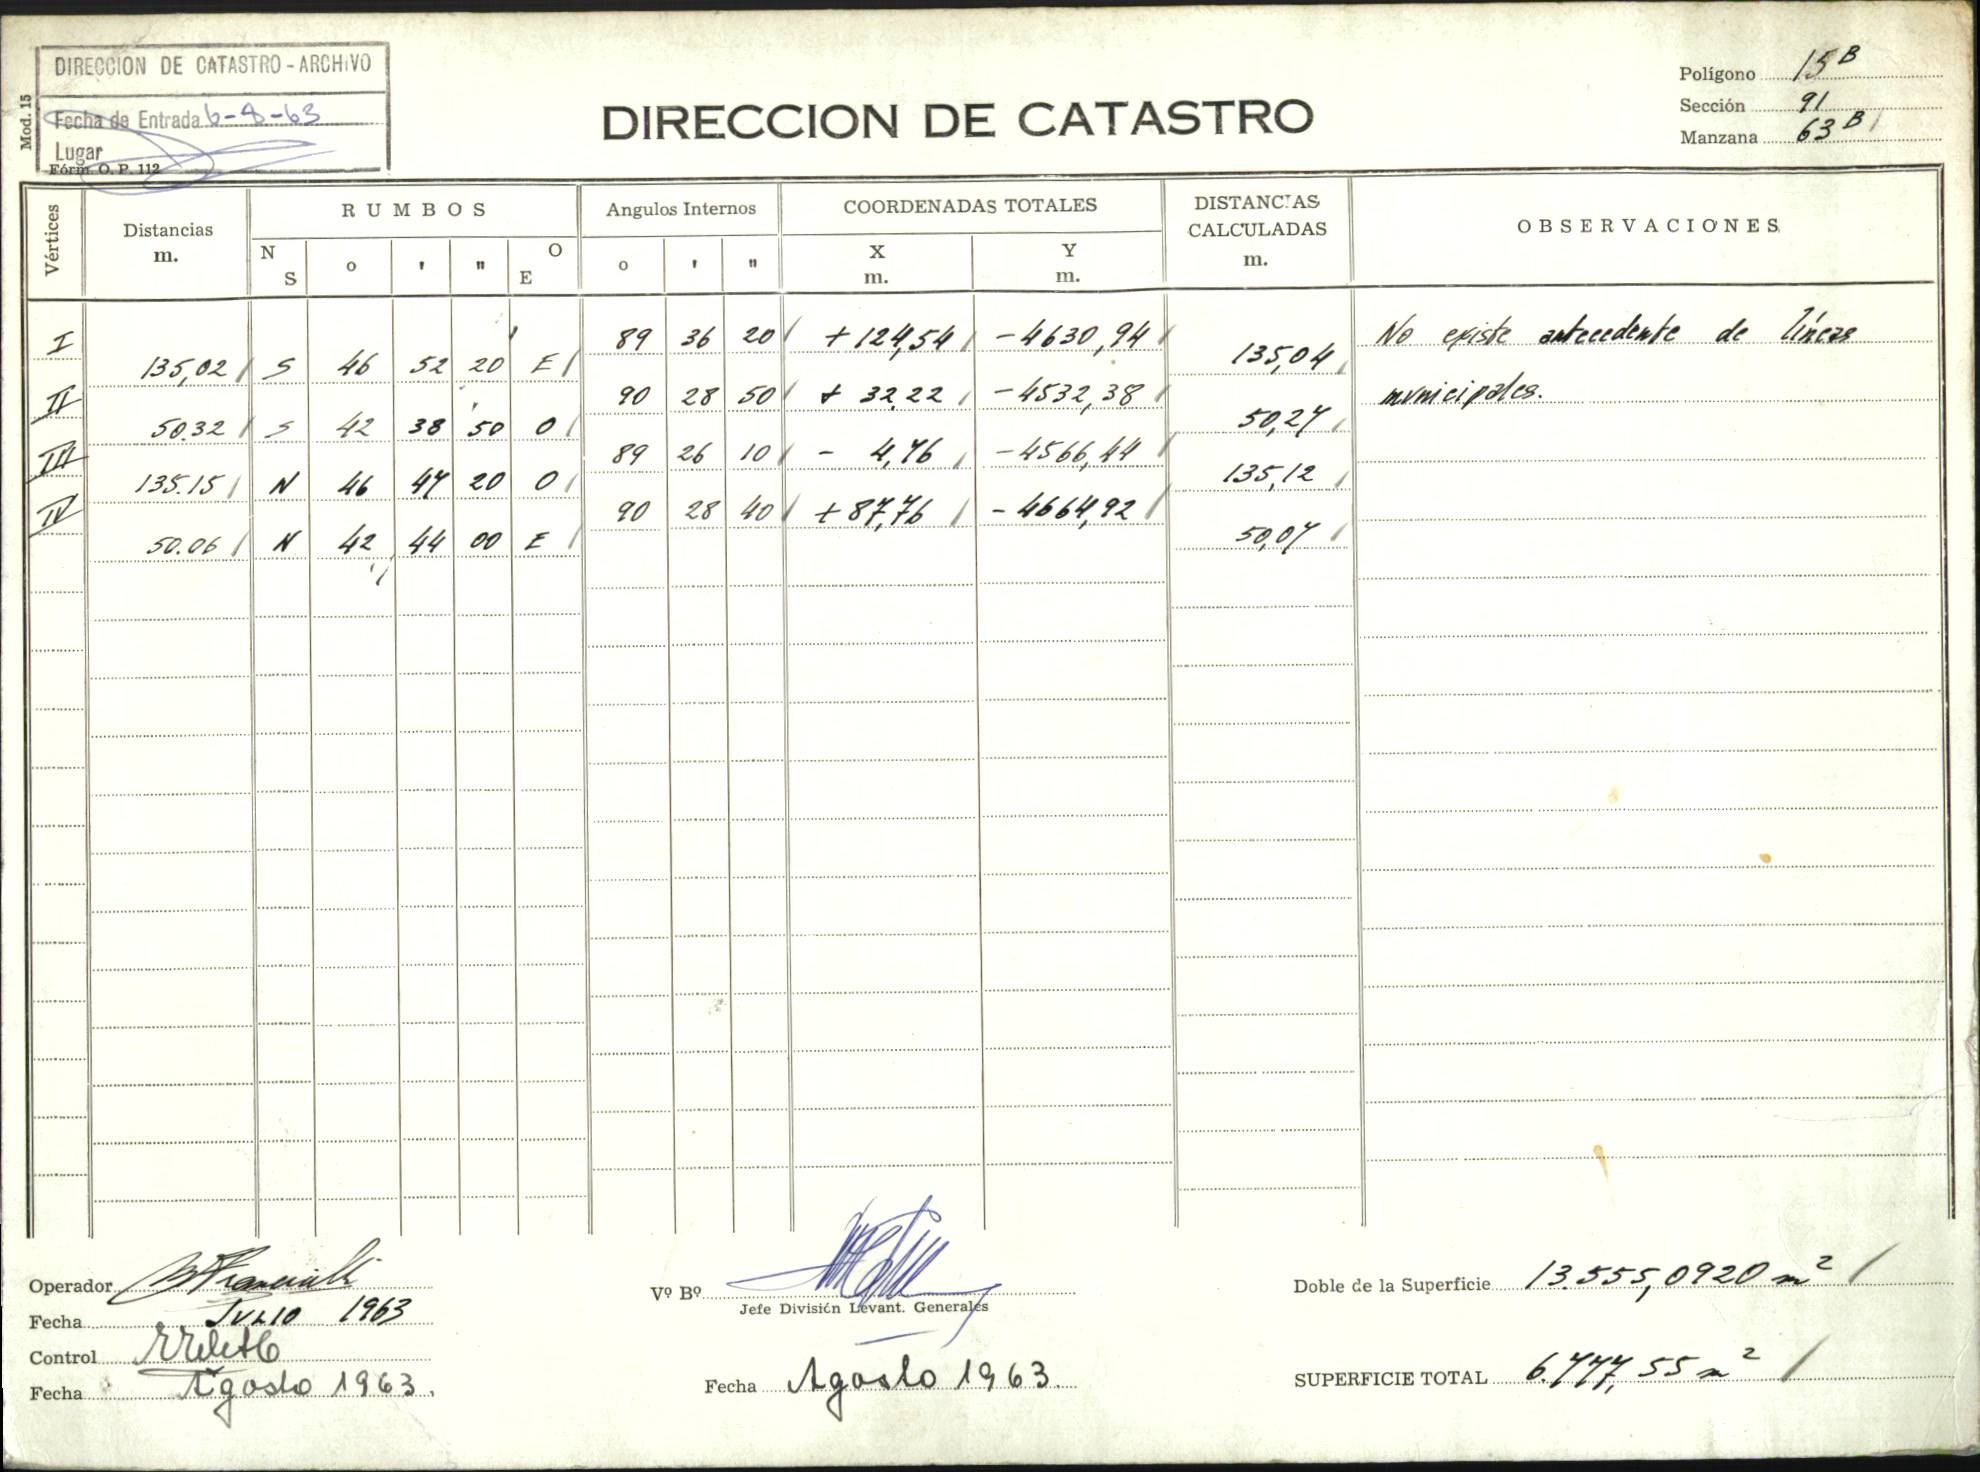 DIRECCION DE CATASTRO - ARCHIVO
Fecha de Entrada 6-8-63
Lugar
Mod. 15
Fórm. O. P. 112
DIRECCION DE CATASTRO
Polígono 15 B
Sección 91
Manzana 63 B
Vértices
Distancias m.
RUMBOS
Angulos Internos
COORDENADAS TOTALES
DISTANCIAS CALCULADAS m.
OBSERVACIONES
N S o ' " O E
o ' "
X m. Y m.
I 89 36 20 + 124,54 - 4630,94 No existe antecedente de líneas
135,02 S 46 52 20 E 135,04
II 90 28 50 + 32,22 - 4532,38 municipales.
50.32 S 42 38 50 O 50,27
III 89 26 10 - 4,76 - 4566,44
135.15 N 46 47 20 O 135,12
IV 90 28 40 + 87,76 - 4664,92
50.06 N 42 44 00 E 50,07
Operador
Fecha Julio 1963
Control
Fecha Agosto 1963.
Vº Bº
Jefe División Levant. Generales
Fecha Agosto 1963.
Doble de la Superficie 13.555,0920 m²
SUPERFICIE TOTAL 6.777,55 m²